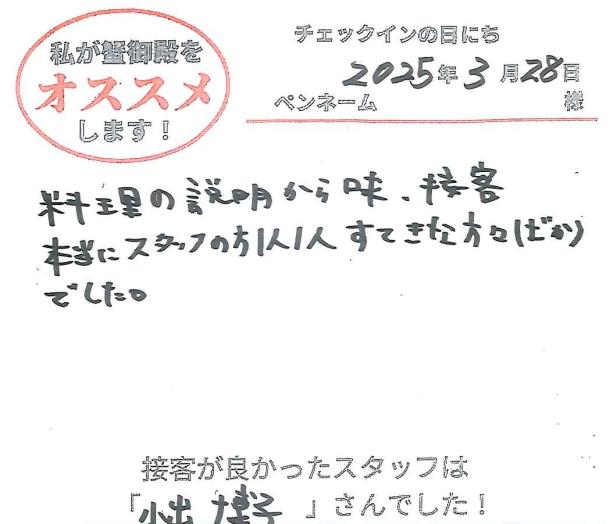 私が蟹御殿を
オススメ
します！
チェックインの日にち
2025年3月28日
ペンネーム 様
料理の説明から味、接客
本当にスタッフの方1人1人すてきな方々ばかり
でした。
接客が良かったスタッフは
「小出 」さんでした！